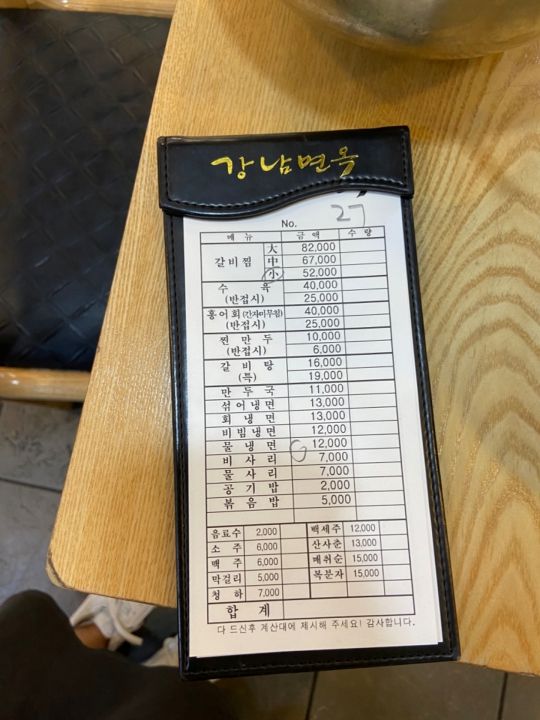 강남면옥
No. 27
메뉴 금액 수량
갈비찜 大 82,000
中 67,000
小 52,000
수육 40,000
(반접시) 25,000
홍어회(간자미무침) 40,000
(반접시) 25,000
찐만두 10,000
(반접시) 6,000
갈비탕 16,000
(특) 19,000
만두국 11,000
섞어냉면 13,000
회냉면 13,000
비빔냉면 12,000
물냉면 12,000
비사리 7,000
물사리 7,000
공기밥 2,000
볶음밥 5,000
음료수 2,000 백세주 12,000
소주 6,000 산사춘 13,000
맥주 6,000 매취순 15,000
막걸리 5,000 복분자 15,000
청하 7,000
합계
다 드신후 계산대에 제시해 주세요! 감사합니다.